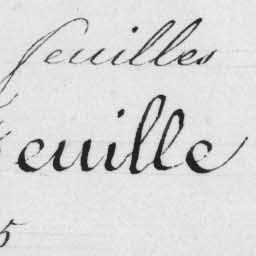 feuilles
euille
5